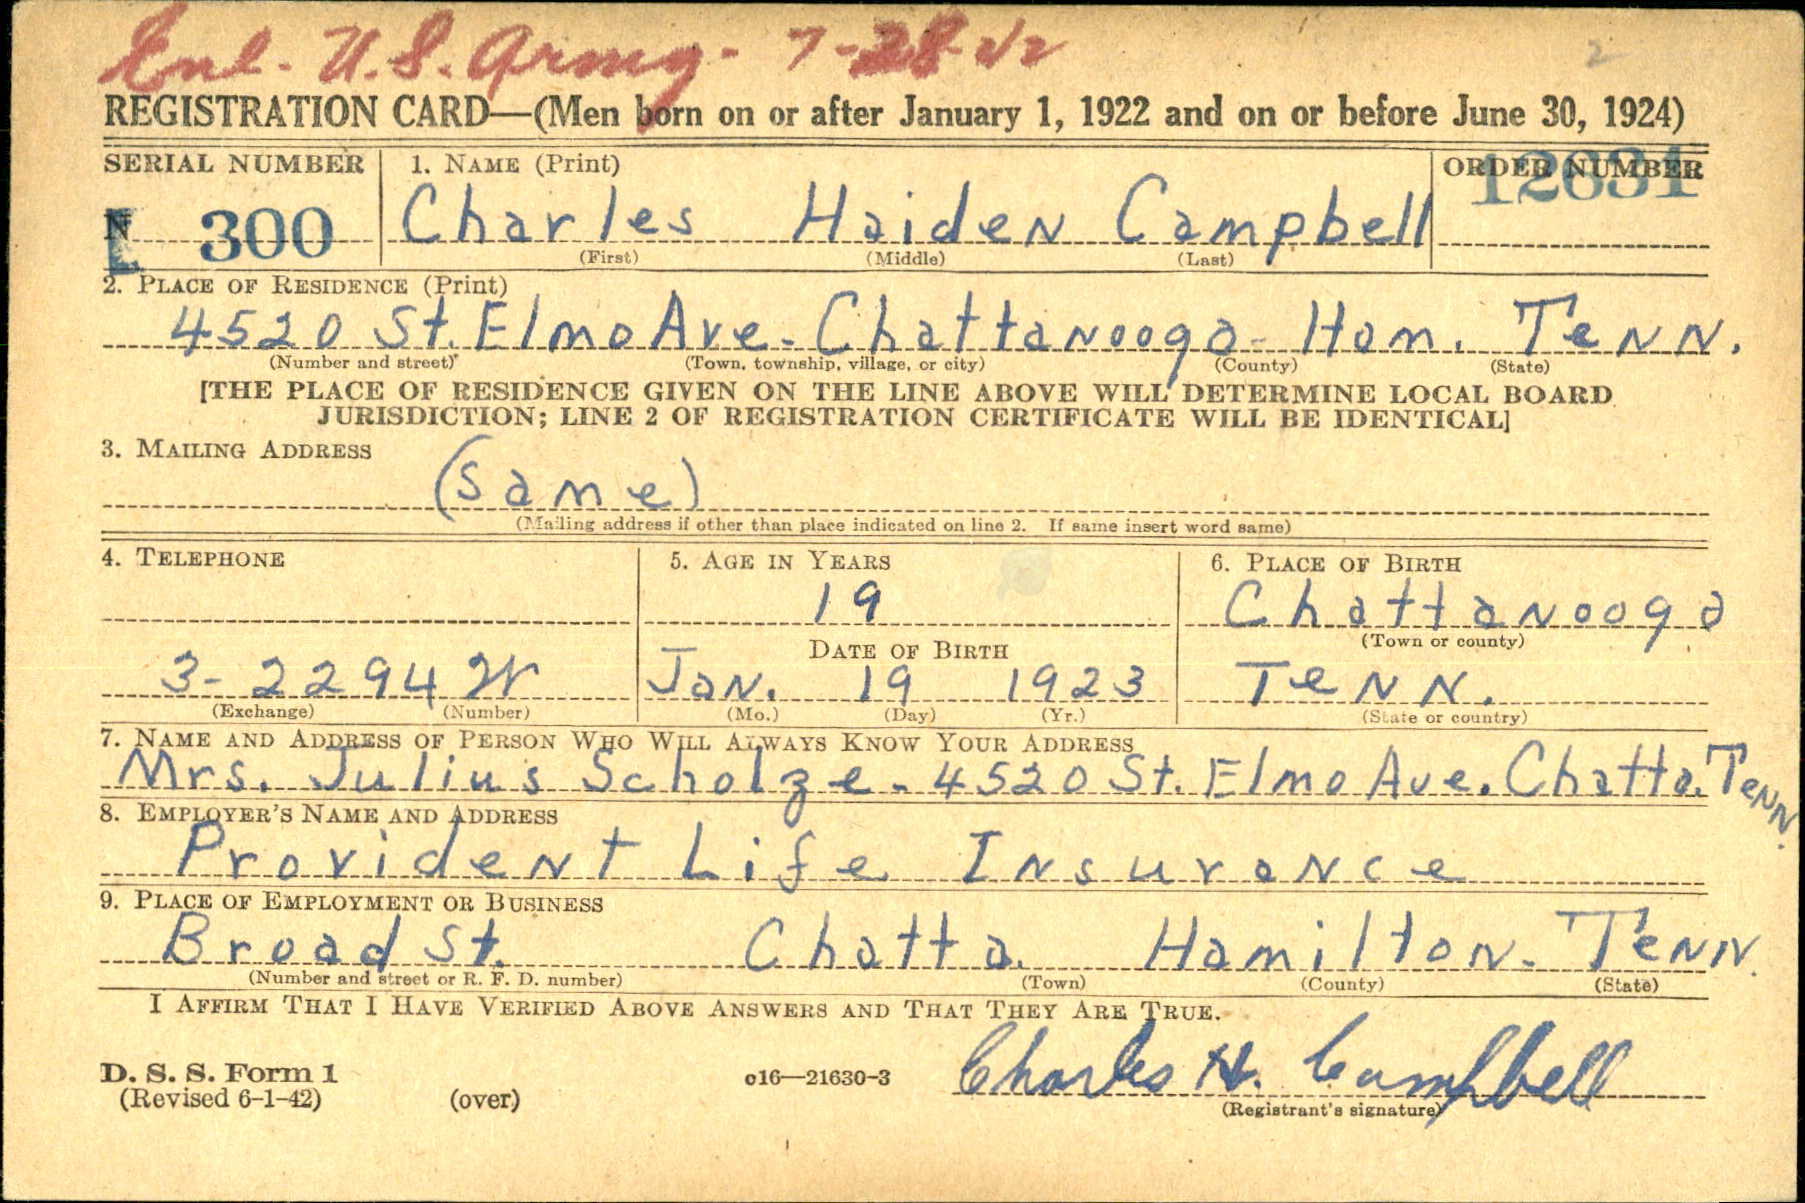 Enl. U.S. Army - 7-28-42
2
REGISTRATION CARD—(Men born on or after January 1, 1922 and on or before June 30, 1924)
SERIAL NUMBER 1. NAME (Print) ORDER NUMBER
N 300 Charles Haiden Campbell 12631
(First) (Middle) (Last)
2. PLACE OF RESIDENCE (Print)
4520 St. Elmo Ave. Chattanooga - Ham. Tenn.
(Number and street) (Town, township, village, or city) (County) (State)
[THE PLACE OF RESIDENCE GIVEN ON THE LINE ABOVE WILL DETERMINE LOCAL BOARD
JURISDICTION; LINE 2 OF REGISTRATION CERTIFICATE WILL BE IDENTICAL]
3. MAILING ADDRESS
(same)
(Mailing address if other than place indicated on line 2. If same insert word same)
4. TELEPHONE 5. AGE IN YEARS 6. PLACE OF BIRTH
19 Chattanooga
DATE OF BIRTH (Town or county)
3-2294W Jan. 19 1923 Tenn.
(Exchange) (Number) (Mo.) (Day) (Yr.) (State or country)
7. NAME AND ADDRESS OF PERSON WHO WILL ALWAYS KNOW YOUR ADDRESS
Mrs. Julius Scholze - 4520 St. Elmo Ave. Chatta. Tenn.
8. EMPLOYER'S NAME AND ADDRESS
Provident Life Insurance
9. PLACE OF EMPLOYMENT OR BUSINESS
Broad St. Chatta. Hamilton - Tenn.
(Number and street or R. F. D. number) (Town) (County) (State)
I AFFIRM THAT I HAVE VERIFIED ABOVE ANSWERS AND THAT THEY ARE TRUE.
D. S. S. Form 1 c16—21630-3 Charles H. Campbell
(Revised 6-1-42) (over) (Registrant's signature)